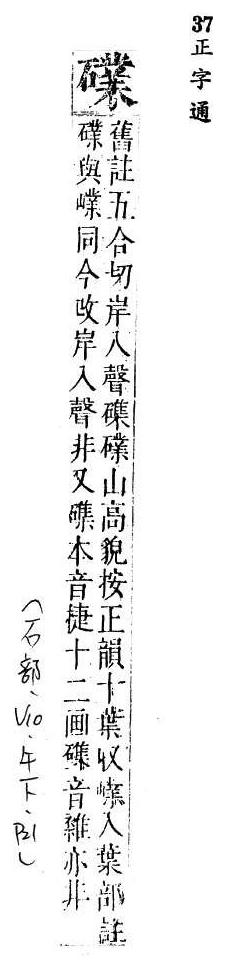 37正字通
礏
舊註五合切岸入聲磼礏山高貌按正韻十葉收嶫入葉部註
礏與嶫同今改岸入聲非又磼本音捷十二画磼音雜亦非
(石部、V10、午下、P21)